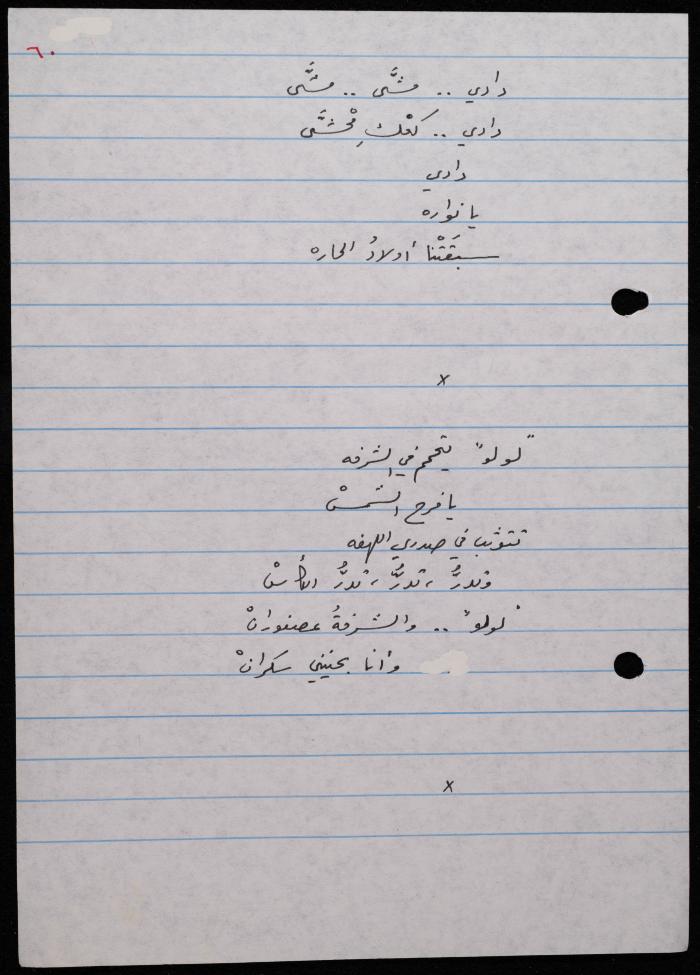 ٦٠
دادي .. مشَّى .. مشَّى
دادي .. كعْكِ مْحَشَّى
دادي
يا نواره
سبقَتْنا أولادُ الحاره
x
"لولو" يتحمم في الشرفه
يا فرح الشمسْ
تتوثب في صدري اللهفه
وتدورُ ، تدورُ ، تدورُ الكأسْ
"لولو" .. والشرفةُ عصفورانْ
وأنا بحنيني سكرانْ
x